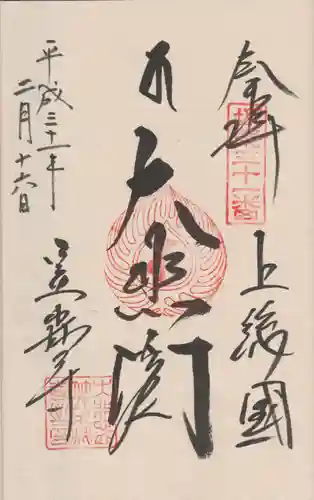 奉拝
坂東三十一番
上総國
大悲閣
笠森寺
平成三十一年
二月十六日